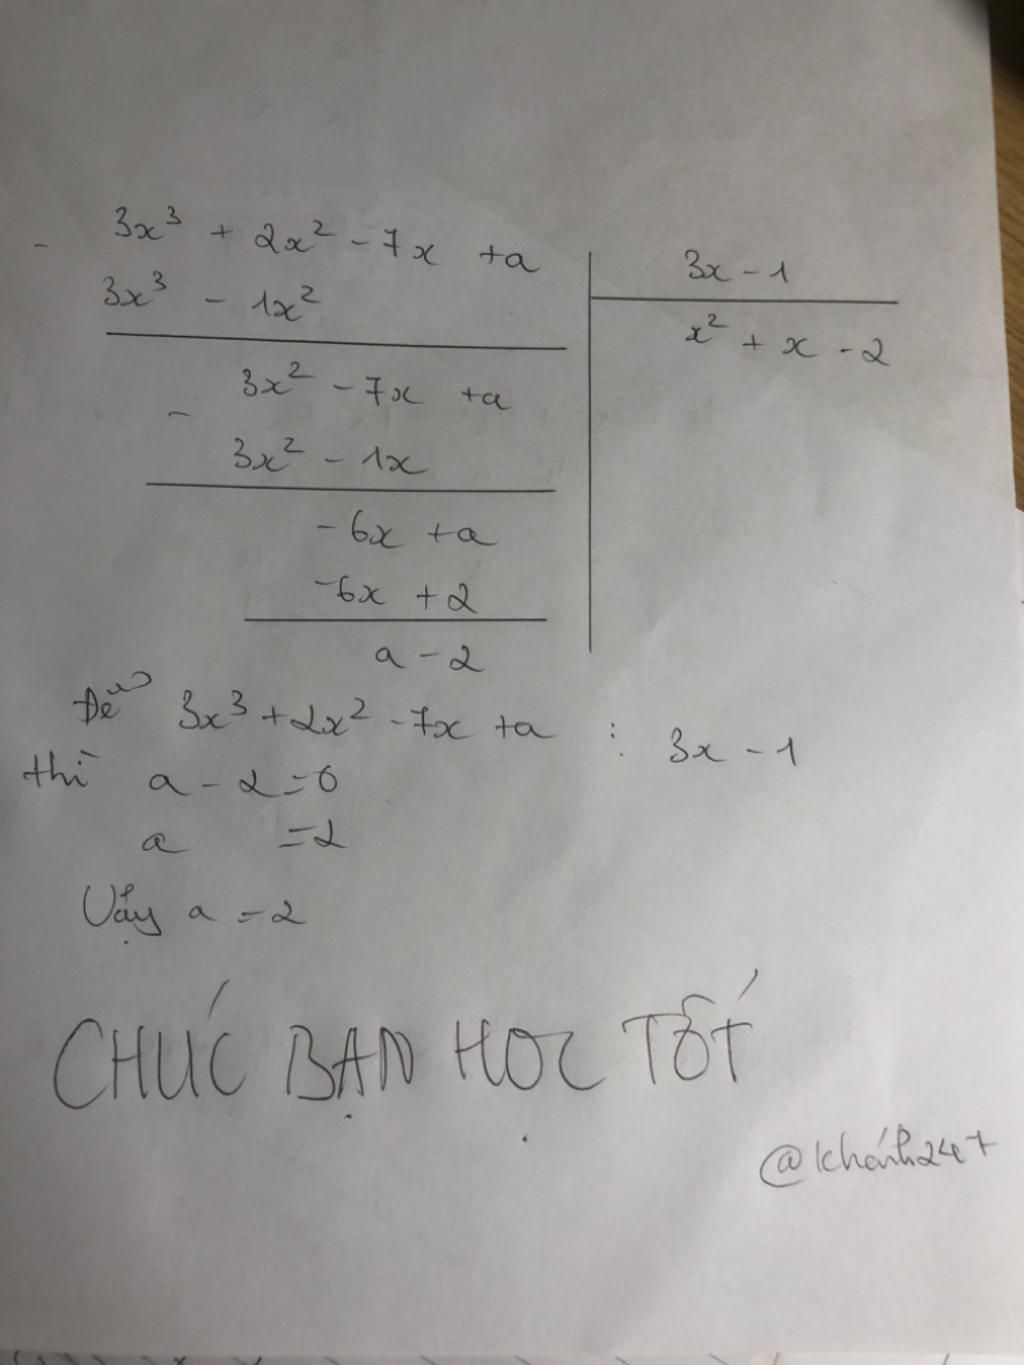 - 3x³ + 2x² - 7x + a
3x - 1
3x³ - 1x²
x² + x - 2
3x² - 7x + a
-
3x² - 1x
-6x + a
-6x + 2
a - 2
Để 3x³ + 2x² - 7x + a ⋮ 3x - 1
thì a - 2 = 0
a = 2
Vậy a = 2
CHÚC BẠN HỌC TỐT
@khánh247